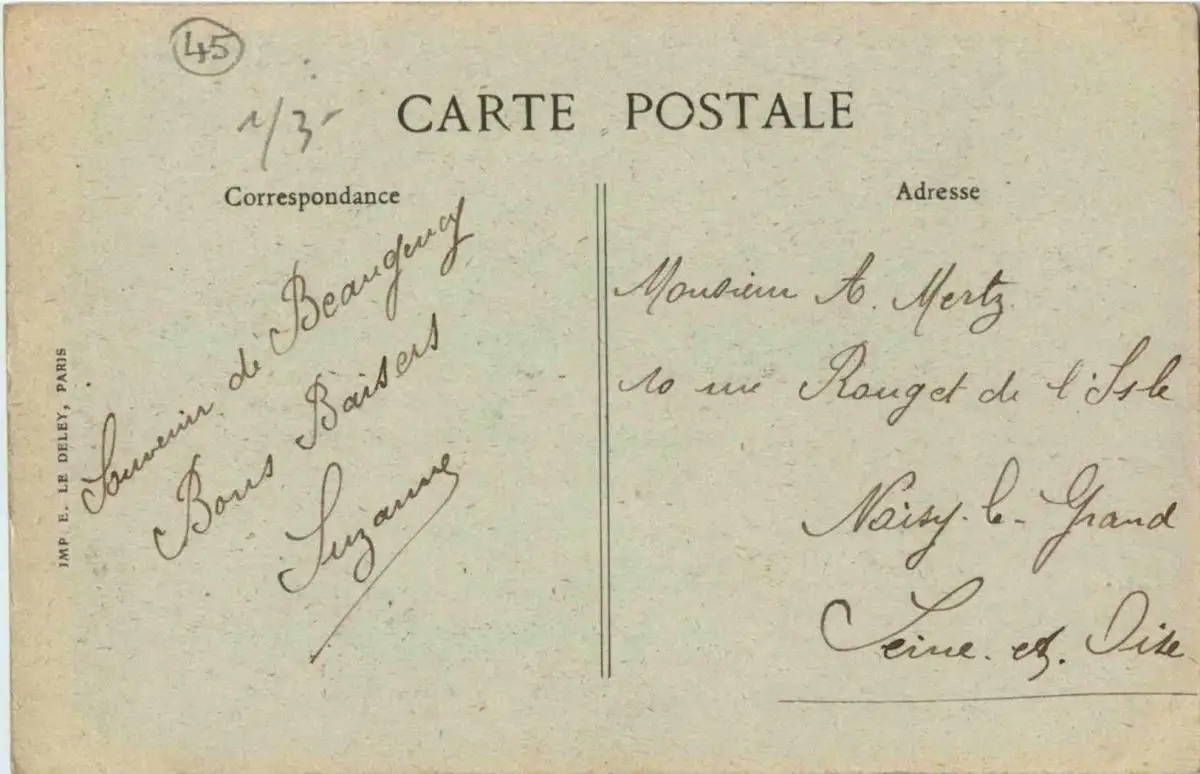 45
1/3-
CARTE POSTALE
Correspondance
Adresse
Souvenir de Beaugency
Bons Baisers
Suzanne
Monsieur A. Mertz
10 rue Rouget de l'Isle
Noisy-le-Grand
Seine-et-Oise
IMP E. LE DELEY, PARIS